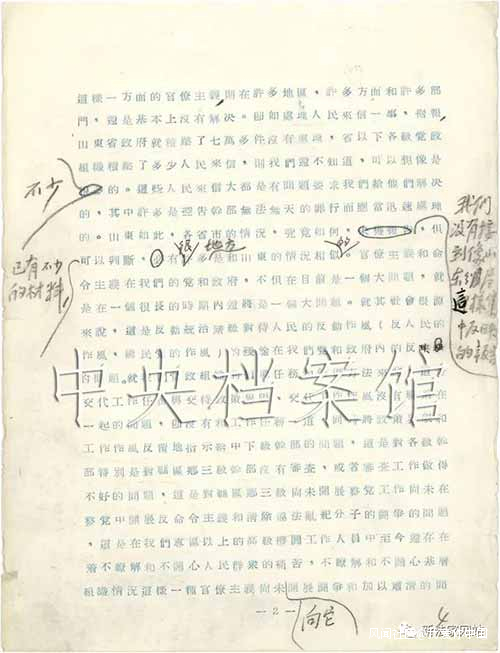 這樣一方面的官僚主義則在許多地區，許多方面和許多部
門，還是基本上沒有解決。即如處理人民來信一事，據報
山東省政府就積壓了七萬多件沒有處理，省以下各級黨政
組織積壓了多少人民來信，則我們還不知道，可以想像是
的。這些人民來信大都是有問題要求我們給他們解決
不少
的，其中許多是控告幹部無法無天的罪行而應當迅速處理
的。山東如此，各省市的情況，究竟如何，
但
我們
沒有接
到像山
東
這樣
集中反映
的報告
已有不少
的材料，
很
地方
的
可以判斷，有
多是和山東的情況相似。官僚主義和命
令主義在我們的黨和政府，不但在目前是一個大問題，就
是在一個很長的時期內還將是一個大問題。就其社會根源
來說，這是反動統治階級對待人民的反動作風（反人民的
作風，國民黨的作風）的殘餘在我們黨和政府內的反映
的問題。就
交代工作任務與交待政策界限
一起的問題，即沒有和工作任務一道，同時將政策界限和
工作作風反覆地指示給中下級幹部的問題，這是對各級幹
部特別是對縣區鄉三級幹部沒有審查，或者審查工作做得
不好的問題，這是對縣區鄉三級尚未開展整黨工作尚未在
整黨中開展反命令主義和清除違法亂紀分子的鬥爭的問題
，這是在我們專區以上的高級機關工作人員中至今還存在
着不瞭解和不關心人民群衆的痛苦，不瞭解和不關心基層
組織情況這樣一種官僚主義尚未開展鬥爭和加以肅清的問
— 2 —
向它
4
中央档案馆